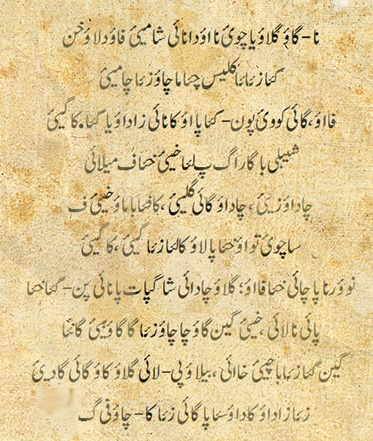 نا - گاؤ گلاؤ یا چوئ نا اؤ دانائی شامیئ فاؤ دلاؤ خن
گنا زنانا کلیس چنا ما چاؤ زنا چامیئ
فااؤ، گائی کووئ پون - گنا پااؤ کانائی زاداؤ یا گنا. کا گیئ
شمیلی با گاراگ پلنا خیئ حناف میلائی
چاداؤ زیئ، چاداؤ گائی کلیئ، کافنا باماؤ خیئ ف
ساچوئ تو اؤ حنا پالاؤ کالنا زنا گیئ، کا گیئ
نوؤرنا پاچائی حنا فااؤ؛ گلاؤ چادائی شاگپات پانائی پن - گنا حنا
پائی نالائی، خیئ گین گاؤ چاچاؤ زنا گا گاؤ ییئ گانا
گین گنا زنا باچیئ خاائی، بیلاؤ پی - لائی گلاؤ کاؤ گائی گادیئ
زنا زاداؤ کاداؤ سنا پاگائی زنا کا - چاؤ فی گ